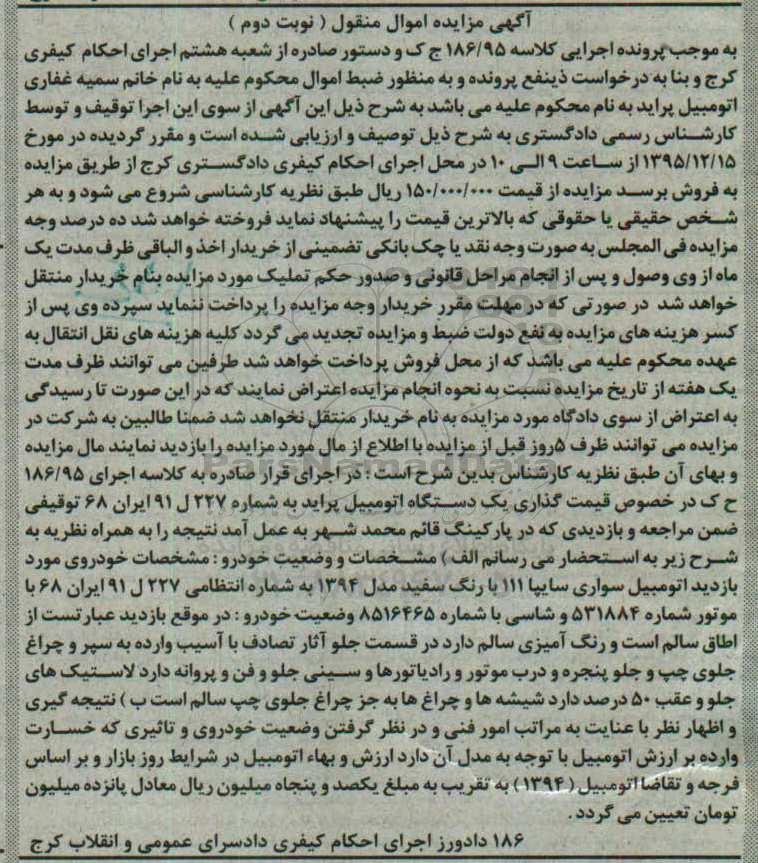 آگهی مزایده اموال منقول ( نوبت دوم )
به موجب پرونده اجرایی کلاسه ۱۸۶/۹۵ ج ک و دستور صادره از شعبه هشتم اجرای احکام کیفری
کرج و بنا به درخواست ذینفع پرونده و به منظور ضبط اموال محکوم علیه به نام خانم سمیه غفاری
اتومبیل پراید به نام محکوم علیه می باشد به شرح ذیل این آگهی از سوی این اجرا توقیف و توسط
کارشناس رسمی دادگستری به شرح ذیل توصیف و ارزیابی شده است و مقرر گردیده در مورخ
۱۳۹۵/۱۲/۱۵ از ساعت ۹ الی ۱۰ در محل اجرای احکام کیفری دادگستری کرج از طریق مزایده
به فروش برسد مزایده از قیمت ۱۵۰/۰۰۰/۰۰۰ ریال طبق نظریه کارشناسی شروع می شود و به هر
شخص حقیقی یا حقوقی که بالاترین قیمت را پیشنهاد نماید فروخته خواهد شد ده درصد وجه
مزایده فی المجلس به صورت وجه نقد یا چک بانکی تضمینی از خریدار اخذ و الباقی ظرف مدت یک
ماه از وی وصول و پس از انجام مراحل قانونی و صدور حکم تملیک مورد مزایده بنام خریدار منتقل
خواهد شد در صورتی که در مهلت مقرر خریدار وجه مزایده را پرداخت ننماید سپرده وی پس از
کسر هزینه های مزایده به نفع دولت ضبط و مزایده تجدید می گردد کلیه هزینه های نقل انتقال به
عهده محکوم علیه می باشد که از محل فروش پرداخت خواهد شد طرفین می توانند ظرف مدت
یک هفته از تاریخ مزایده نسبت به نحوه انجام مزایده اعتراض نمایند که در این صورت تا رسیدگی
به اعتراض از سوی دادگاه مورد مزایده به نام خریدار منتقل نخواهد شد ضمنا طالبین به شرکت در
مزایده می توانند ظرف ۵روز قبل از مزایده با اطلاع از مال مورد مزایده را بازدید نمایند مال مزایده
و بهای آن طبق نظریه کارشناس بدین شرح است : در اجرای قرار صادره به کلاسه اجرای ۱۸۶/۹۵
ح ک در خصوص قیمت گذاری یک دستگاه اتومبیل پراید به شماره ۲۲۷ ل ۹۱ ایران ۶۸ توقیفی
ضمن مراجعه و بازدیدی که در پارکینگ قائم محمد شهر به عمل آمد نتیجه را به همراه نظریه به
شرح زیر به استحضار می رسانم الف ) مشخصات و وضعیت خودرو : مشخصات خودروی مورد
بازدید اتومبیل سواری سایپا ۱۱۱ با رنگ سفید مدل ۱۳۹۴ به شماره انتظامی ۲۲۷ ل ۹۱ ایران ۶۸ با
موتور شماره ۵۳۱۸۸۴ و شاسی با شماره ۸۵۱۶۴۶۵ وضعیت خودرو : در موقع بازدید عبارتست از
اطاق سالم است و رنگ آمیزی سالم دارد در قسمت جلو آثار تصادف با آسیب وارده به سپر و چراغ
جلوی چپ و جلو پنجره و درب موتور و رادیاتورها و سینی جلو و فن و پروانه دارد لاستیک های
جلو و عقب ۵۰ درصد دارد شیشه ها و چراغ ها به جز چراغ جلوی چپ سالم است ب ) نتیجه گیری
و اظهار نظر با عنایت به مراتب امور فنی و در نظر گرفتن وضعیت خودروی و تاثیری که خسارت
وارده بر ارزش اتومبیل با توجه به مدل آن دارد ارزش و بهاء اتومبیل در شرایط روز بازار و بر اساس
فرجه و تقاضا اتومبیل ( ۱۳۹۴ ) به تقریب به مبلغ یکصد و پنجاه میلیون ریال معادل پانزده میلیون
تومان تعیین می گردد .
۱۸۶ دادورز اجرای احکام کیفری دادسرای عمومی و انقلاب کرج